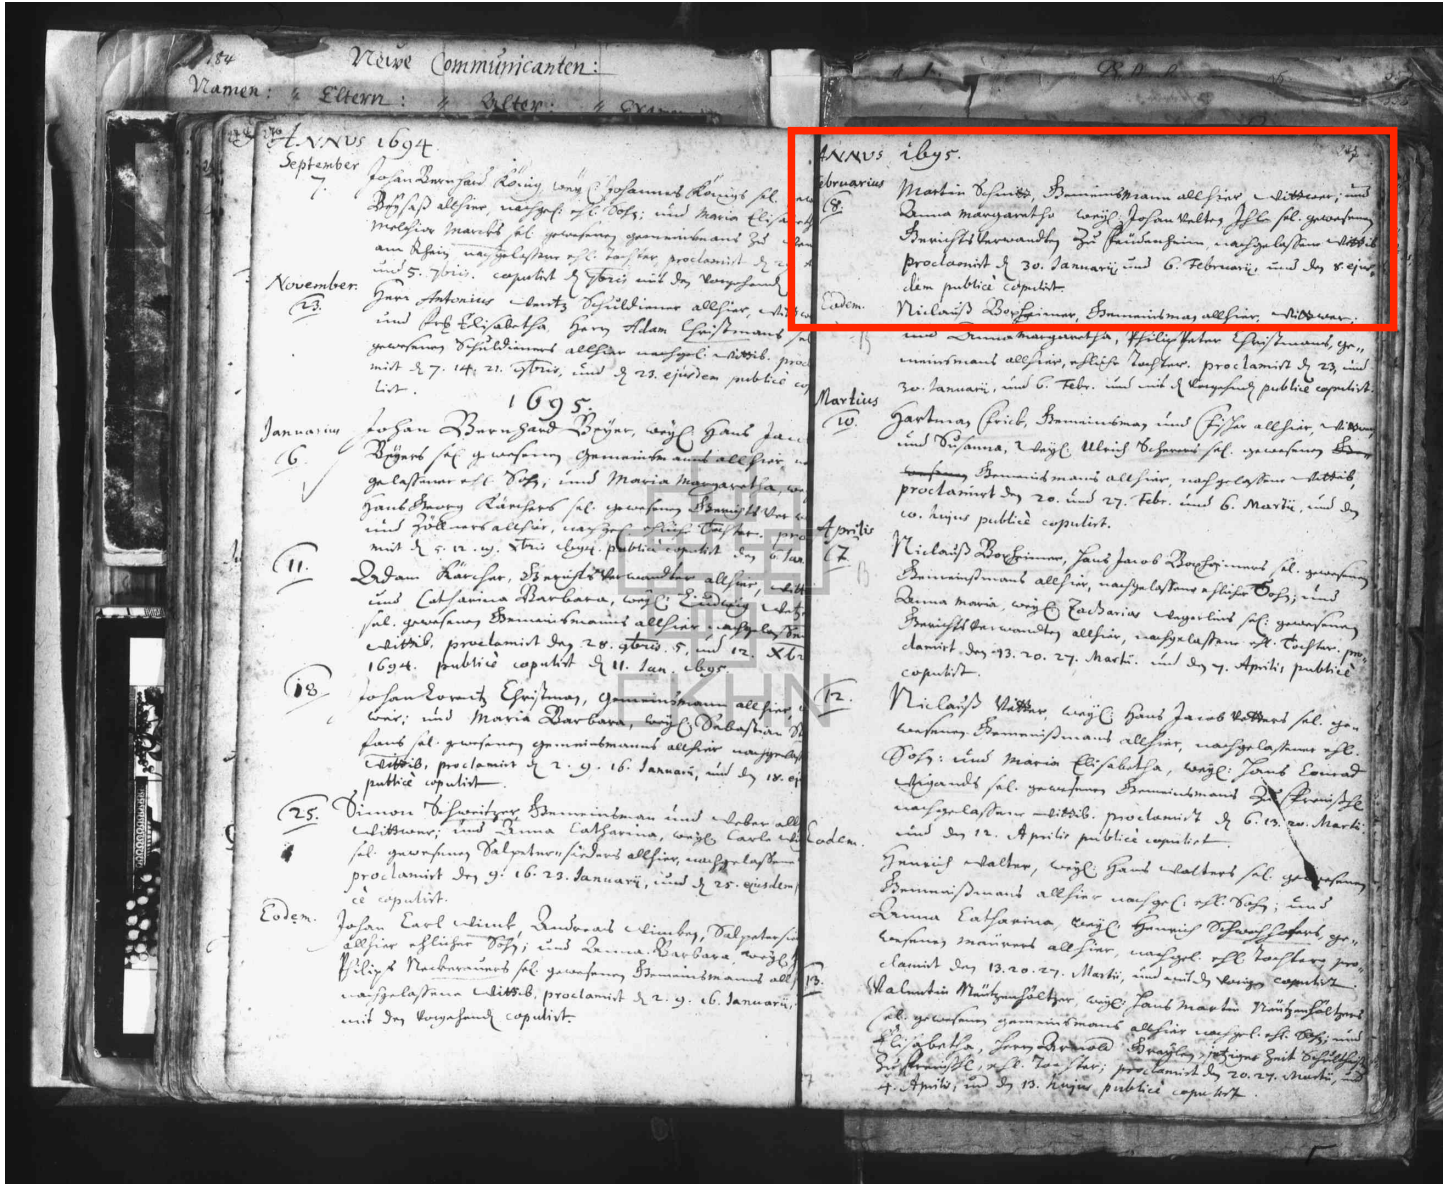 184
Neüe Communicanten:
Namen: " Eltern: " Alter: "
ANNUS 1694.
September
7. Johan Bernhard König, weyl. Johannes Königs sel.
Beysaß allhier, nachgel. ehl. Sohn; und Maria Elisabeth
Melchior sel. gewesenen gemeinsmans zu
am Rhein, nachgelassene ehl. Tochter, proclamirt d.
und 5. 7bris. copulirt d. 7bris mit den Vorgehend
November.
23. Herr Antonius Schuldiener allhier,
und Frs Elisabetha, Herrn Adam Christmans sel
gewesenen Schuldieners allhier nachgel. wittib. proc
mirt d. 7. 14. 21. 9bris, und d. 23. ejusdem publicè co
lirt.
1695.
Januarius
6. Johan Bernhard Beyer, weyl. Hans Jac
Beyers sel. gewesenen Gemeinsmanns allhier,
gelassener ehl. Sohn; und Maria Margaretha, we
Hans Georg Kärchers sel. gewesenen Gerichts Ver
und Zöllners allhier, nachgel. ehliche Tochter. pro
mirt d. 5. 12. 19. Xbris publicè copulirt den 6. Jan.
11. Adam Kärcher, Gerichts Verwandter allhier, witt
und Catharina Barbara, weyl. Ludwig
sel. gewesenen Gemeinsmanns allhier nachgelassen
wittib, proclamirt den 28. 9bris. 5. und 12. Xbr
1694. publicè copulirt d. 11. Jan. 1695.
18. Johan Lorentz Christman, Gemeinsmann allhier,
wer; und Maria Barbara, weyl. Sebastian
fans sel. gewesenen gemeinsmanns allhier nachgelas
wittib, proclamirt d. 2. 9. 16. Januarij, und d. 18. ej
publicè copulirt
25. Simon Schweitzer Gemeinsman und Weber all
Wittwer; und Anna Catharina, weyl. Carle
sel. gewesenen Salpeter-sieders allhier, nachgelassene
proclamirt den 9. 16. 23. Januarij, und d. 25. ejusdem
cè copulirt.
Eodem. Johan Carl, Andreas, Salpetersie
allhier ehlicher Sohn; und Anna Barbara, weyl.
Philips Neckerauers sel. gewesenen Gemeinsmanns all
nachgelassene Wittib, proclamirt d. 2. 9. 16. Januarij,
mit den Vorgehend copulirt.
ANNUS 1695.
Februarius
8. Martin Schmitt, Gemeinsmann allhier Wittwer; und
Anna Margaretha weyl. Johan Velten Ihle sel. gewesenen
Gerichts Verwandten zu Feudenheim, nachgelassene Wittib
proclamirt d. 30. Januarij und 6. Februarij, und den 8. ejus-
dem publicè copulirt.
Eodem. Niclauß Boxheimer, Gemeinsman allhier, Wittwer;
und Anna Margaretha, Philip Peter Christmans, ge-
meinsmans allhier, ehliche Tochter. proclamirt d. 23. und
30. Januarij, und 6. Febr. und mit d. Vorgehend publicè copulirt.
Martius
10. Hartman Frick, Gemeinsman und Fischer allhier, Wittwer,
und Susanna, weyl. Ulrich Scherers sel. gewesenen
Gemeinsmans allhier, nachgelassene Wittib,
proclamirt den 20. und 27. Febr. und 6. Martij, und den
10. hujus publicè copulirt.
Aprilis
7. Niclauß Boxheimer, Hans Jacob Boxheimers sel. gewesenen
Gemeinsmans allhier, nachgelassener ehlicher Sohn; und
Anna Maria, weyl. Zacharias Wegerlins sel. gewesenen
Gerichts Verwandten allhier, nachgelassene ehl. Tochter. pro-
clamirt den 13. 20. 27. Martij. und den 7. Aprilis publicè
copulirt.
12. Niclauß Vetter, weyl. Hans Jacob Vetters sel. ge-
wesenen Gemeinsmans allhier, nachgelassener ehl.
Sohn: und Maria Elisabetha, weyl. Hans Conrad
Wigands sel. gewesenen Gemeinsmans zu
nachgelassene Wittib. proclamirt d. 6. 13. 20. Martij,
und den 12. Aprilis publicè copulirt
Eodem. Henrich Walter, weyl. Hans Walters sel. gewesenen
Gemeinsmans allhier nachgel. ehl. Sohn; und
Anna Catharina, weyl. Henrich Schwebhofers, ge-
wesenen Maürers allhier, nachgel. ehl. Tochter, pro-
clamirt den 13. 20. 27. Martij, und mit den Vorigen copulirt.
13. Valentin Nützenhöltzer, weyl. Hans Martin Nützenhöltzers
sel. gewesenen gemeinsmans allhier nachgel. ehl. Sohn; und
Elisabetha, Herrn Arnold jetziger Zeit Schultheiß
ehl. Tochter; proclamirt den 20. 27. Martij, und
4. Aprilis, und den 13. hujus publicè copulirt.
EKHN